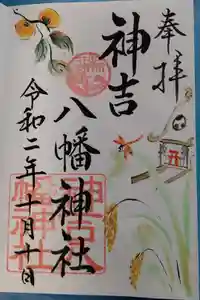 奉拝
神吉
八幡神社
令和二年十月十日